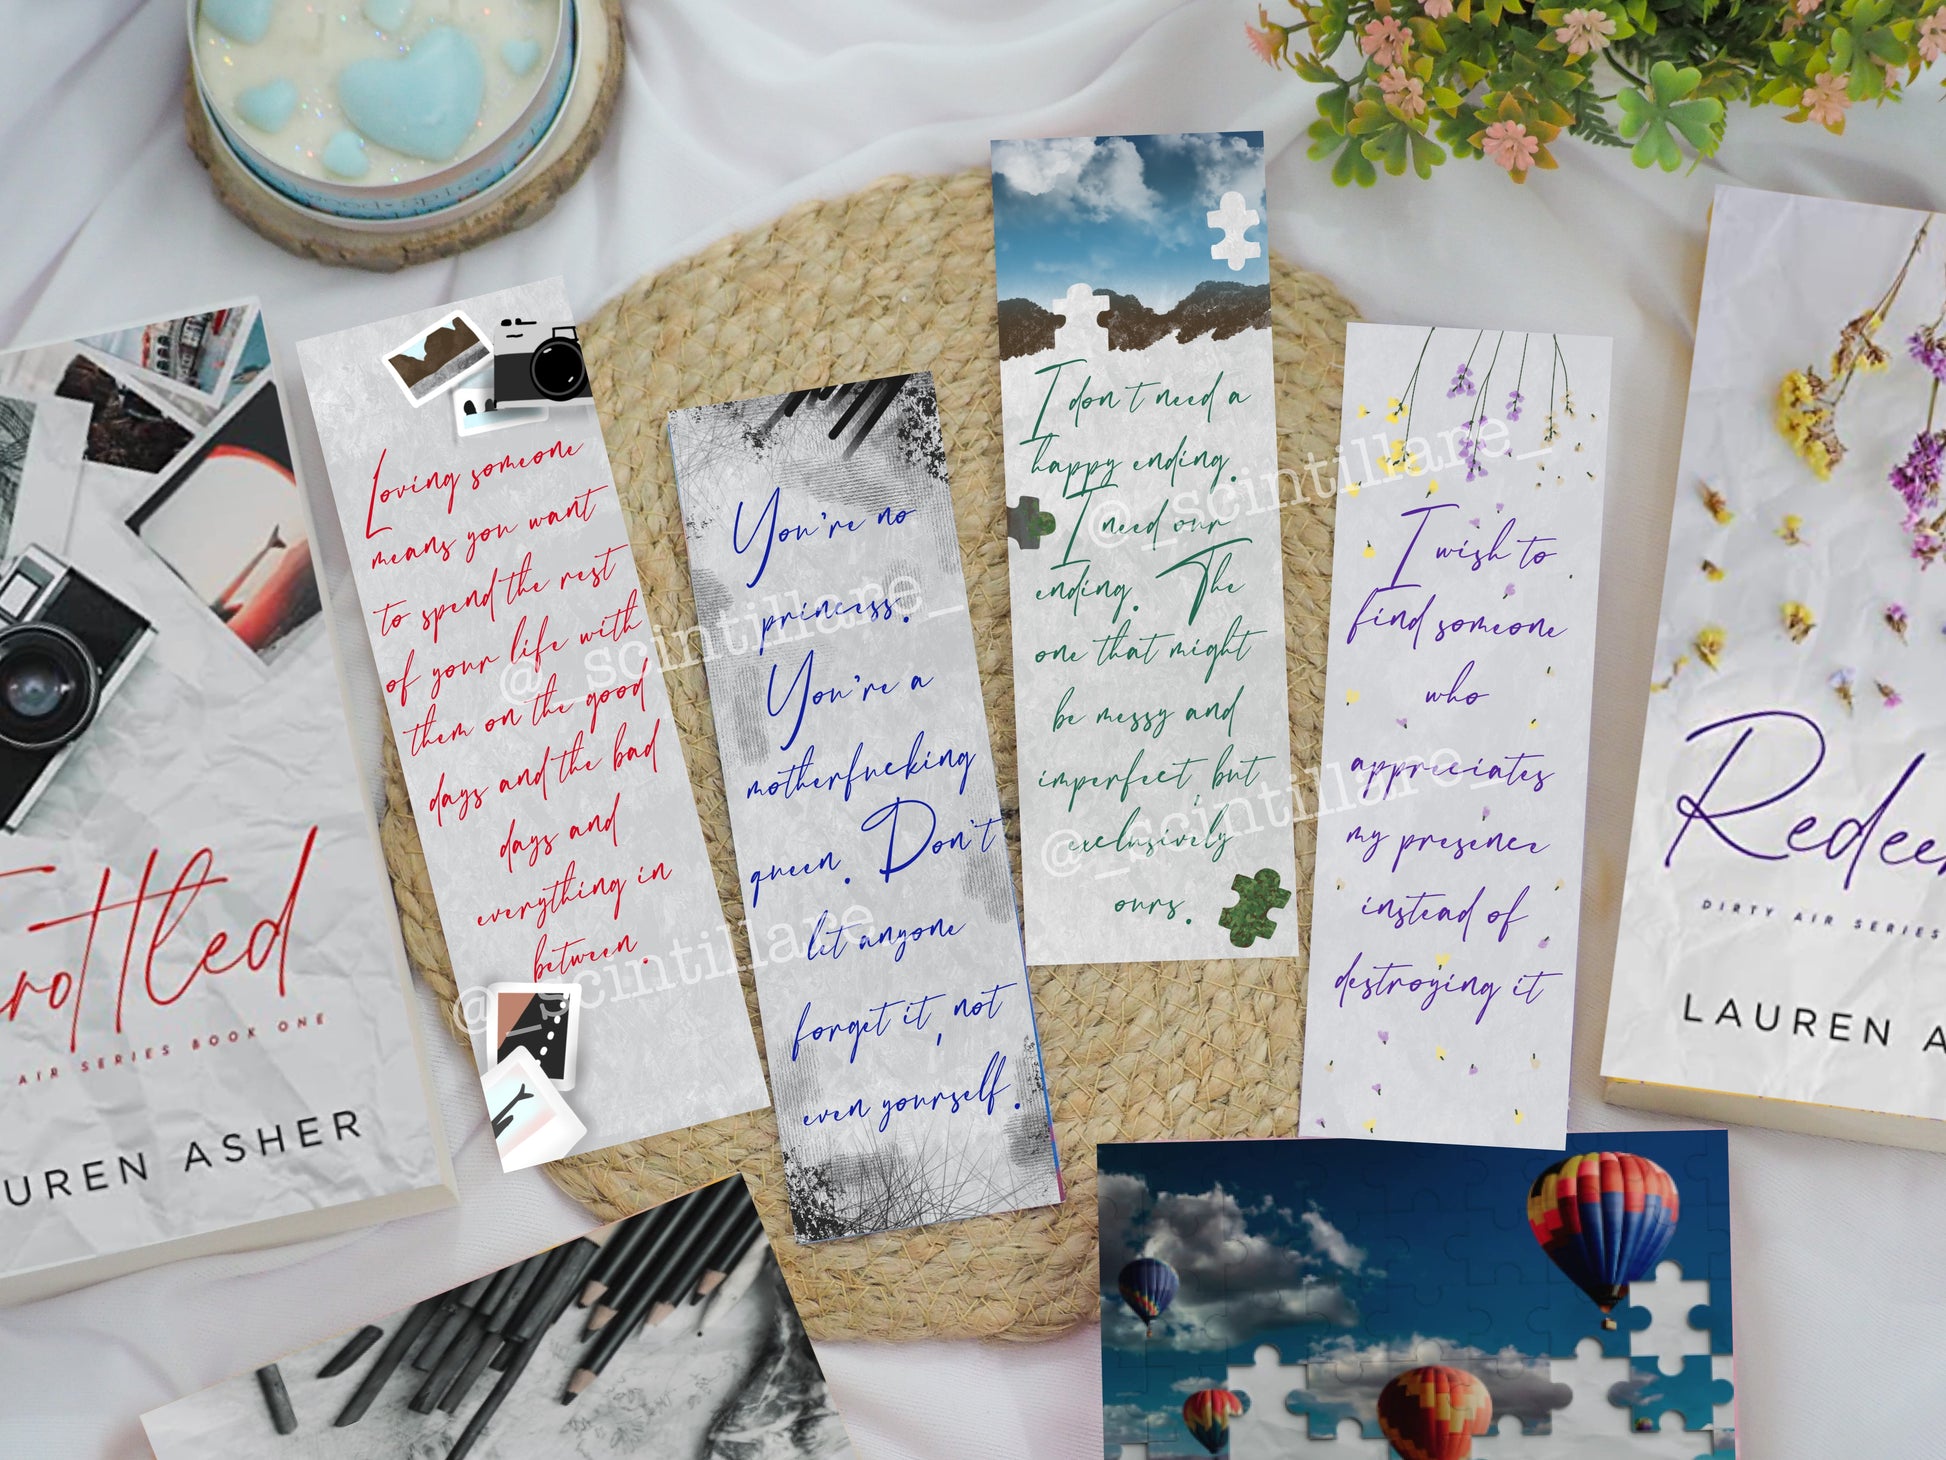 Loving someone
means you want
to spend the rest
of your life with
them on the good
days and the bad
days and
everything in
between.
You're no
princess.
You're a
motherfucking
queen. Don't
let anyone
forget it, not
even yourself.
I don't need a
happy ending.
I need our
ending. The
one that might
be messy and
imperfect, but
exclusively
ours.
I wish to
find someone
who
appreciates
my presence
instead of
destroying it
@_scintillare_
@_scintillare_
@_scintillare_
@_scintillare_
rottled
AIR SERIES BOOK ONE
UREN ASHER
Redee
DIRTY AIR SERIES
LAUREN A